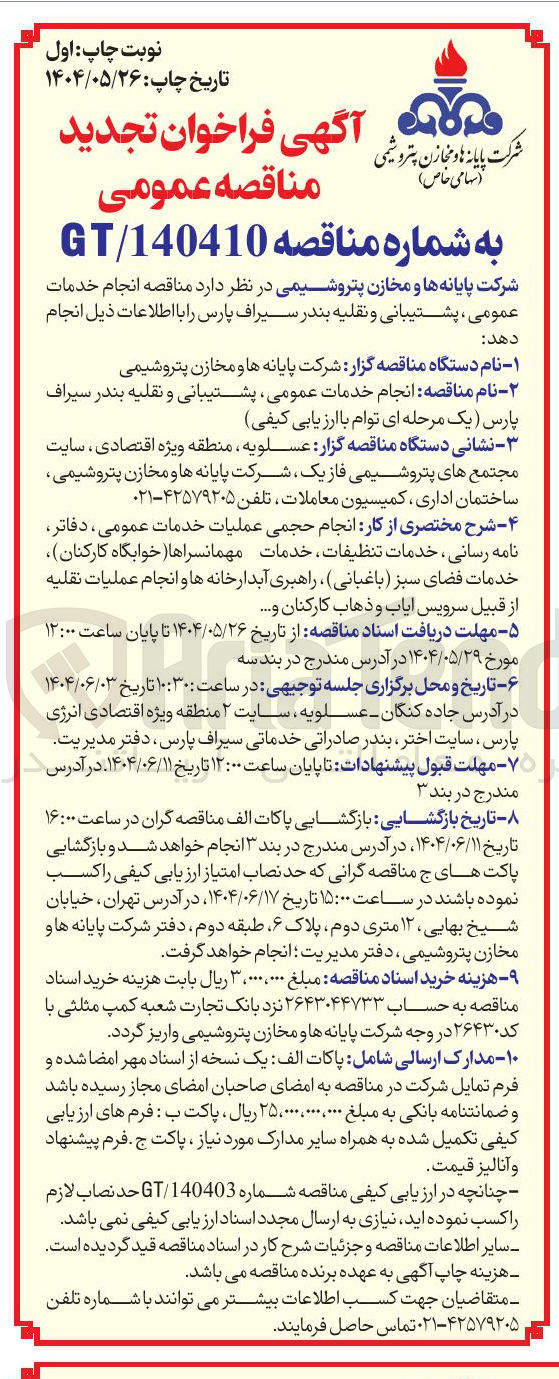 نوبت چاپ: اول
تاریخ چاپ: ۱۴۰۴/۰۵/۲۶
شرکت پایانه ها و مخازن پتروشیمی
(سهامی خاص)
آگهی فراخوان تجدید
مناقصه عمومی
به شماره مناقصه GT/140410
شرکت پایانه‌ها و مخازن پتروشیمی در نظر دارد مناقصه انجام خدمات
عمومی، پشتیبانی و نقلیه بندر سیراف پارس را با اطلاعات ذیل انجام
دهد:
۱-نام دستگاه مناقصه گزار: شرکت پایانه ها و مخازن پتروشیمی
۲-نام مناقصه: انجام خدمات عمومی، پشتیبانی و نقلیه بندر سیراف
پارس (یک مرحله ای توام با ارزیابی کیفی)
۳-نشانی دستگاه مناقصه گزار: عسلویه، منطقه ویژه اقتصادی، سایت
مجتمع های پتروشیمی فاز یک، شرکت پایانه ها و مخازن پتروشیمی،
ساختمان اداری، کمیسیون معاملات، تلفن ۴۲۵۷۹۲۰۵-۰۲۱
۴-شرح مختصری از کار: انجام حجمی عملیات خدمات عمومی، دفاتر،
نامه رسانی، خدمات تنظیفات، خدمات مهمانسراها(خوابگاه کارکنان)،
خدمات فضای سبز (باغبانی)، راهبری آبدارخانه ها و انجام عملیات نقلیه
از قبیل سرویس ایاب و ذهاب کارکنان و...
۵-مهلت دریافت اسناد مناقصه: از تاریخ ۱۴۰۴/۰۵/۲۶ تا پایان ساعت ۱۲:۰۰
مورخ ۱۴۰۴/۰۵/۲۹ در آدرس مندرج در بند سه
۶-تاریخ و محل برگزاری جلسه توجیهی: در ساعت: ۱۰:۳۰ تاریخ ۱۴۰۴/۰۶/۰۳
در آدرس جاده کنگان ـ عسلویه، سایت ۲ منطقه ویژه اقتصادی انرژی
پارس، سایت اختر، بندر صادراتی خدماتی سیراف پارس، دفتر مدیریت.
۷-مهلت قبول پیشنهادات: تا پایان ساعت ۱۲:۰۰ تاریخ ۱۴۰۴/۰۶/۱۱. در آدرس
مندرج در بند ۳
۸-تاریخ بازگشایی: بازگشایی پاکات الف مناقصه گران در ساعت ۱۶:۰۰
تاریخ ۱۴۰۴/۰۶/۱۱، در آدرس مندرج در بند ۳ انجام خواهد شد و بازگشایی
پاکت های ج مناقصه گرانی که حد نصاب امتیاز ارزیابی کیفی را کسب
نموده باشند در ساعت ۱۵:۰۰ تاریخ ۱۴۰۴/۰۶/۱۷، در آدرس تهران، خیابان
شیخ بهایی، ۱۲ متری دوم، پلاک ۶، طبقه دوم، دفتر شرکت پایانه ها و
مخازن پتروشیمی، دفتر مدیریت؛ انجام خواهد گرفت.
۹-هزینه خرید اسناد مناقصه: مبلغ ۳,۰۰۰,۰۰۰ ریال بابت هزینه خرید اسناد
مناقصه به حساب ۲۶۴۳۰۴۴۷۳۳ نزد بانک تجارت شعبه کمپ مثلثی با
کد ۲۶۴۳۰ در وجه شرکت پایانه ها و مخازن پتروشیمی واریز گردد.
۱۰-مدارک ارسالی شامل: پاکات الف: یک نسخه از اسناد مهر امضا شده و
فرم تمایل شرکت در مناقصه به امضای صاحبان امضای مجاز رسیده باشد
و ضمانتنامه بانکی به مبلغ ۲۵,۰۰۰,۰۰۰,۰۰۰ ریال، پاکت ب: فرم های ارزیابی
کیفی تکمیل شده به همراه سایر مدارک مورد نیاز، پاکت ج. فرم پیشنهاد
و آنالیز قیمت.
-چنانچه در ارزیابی کیفی مناقصه شماره GT/140403 حد نصاب لازم
را کسب نموده اید، نیازی به ارسال مجدد اسناد ارزیابی کیفی نمی باشد.
ـ سایر اطلاعات مناقصه و جزئیات شرح کار در اسناد مناقصه قید گردیده است.
ـ هزینه چاپ آگهی به عهده برنده مناقصه می باشد.
ـ متقاضیان جهت کسب اطلاعات بیشتر می توانند با شماره تلفن
۴۲۵۷۹۲۰۵-۰۲۱ تماس حاصل فرمایند.